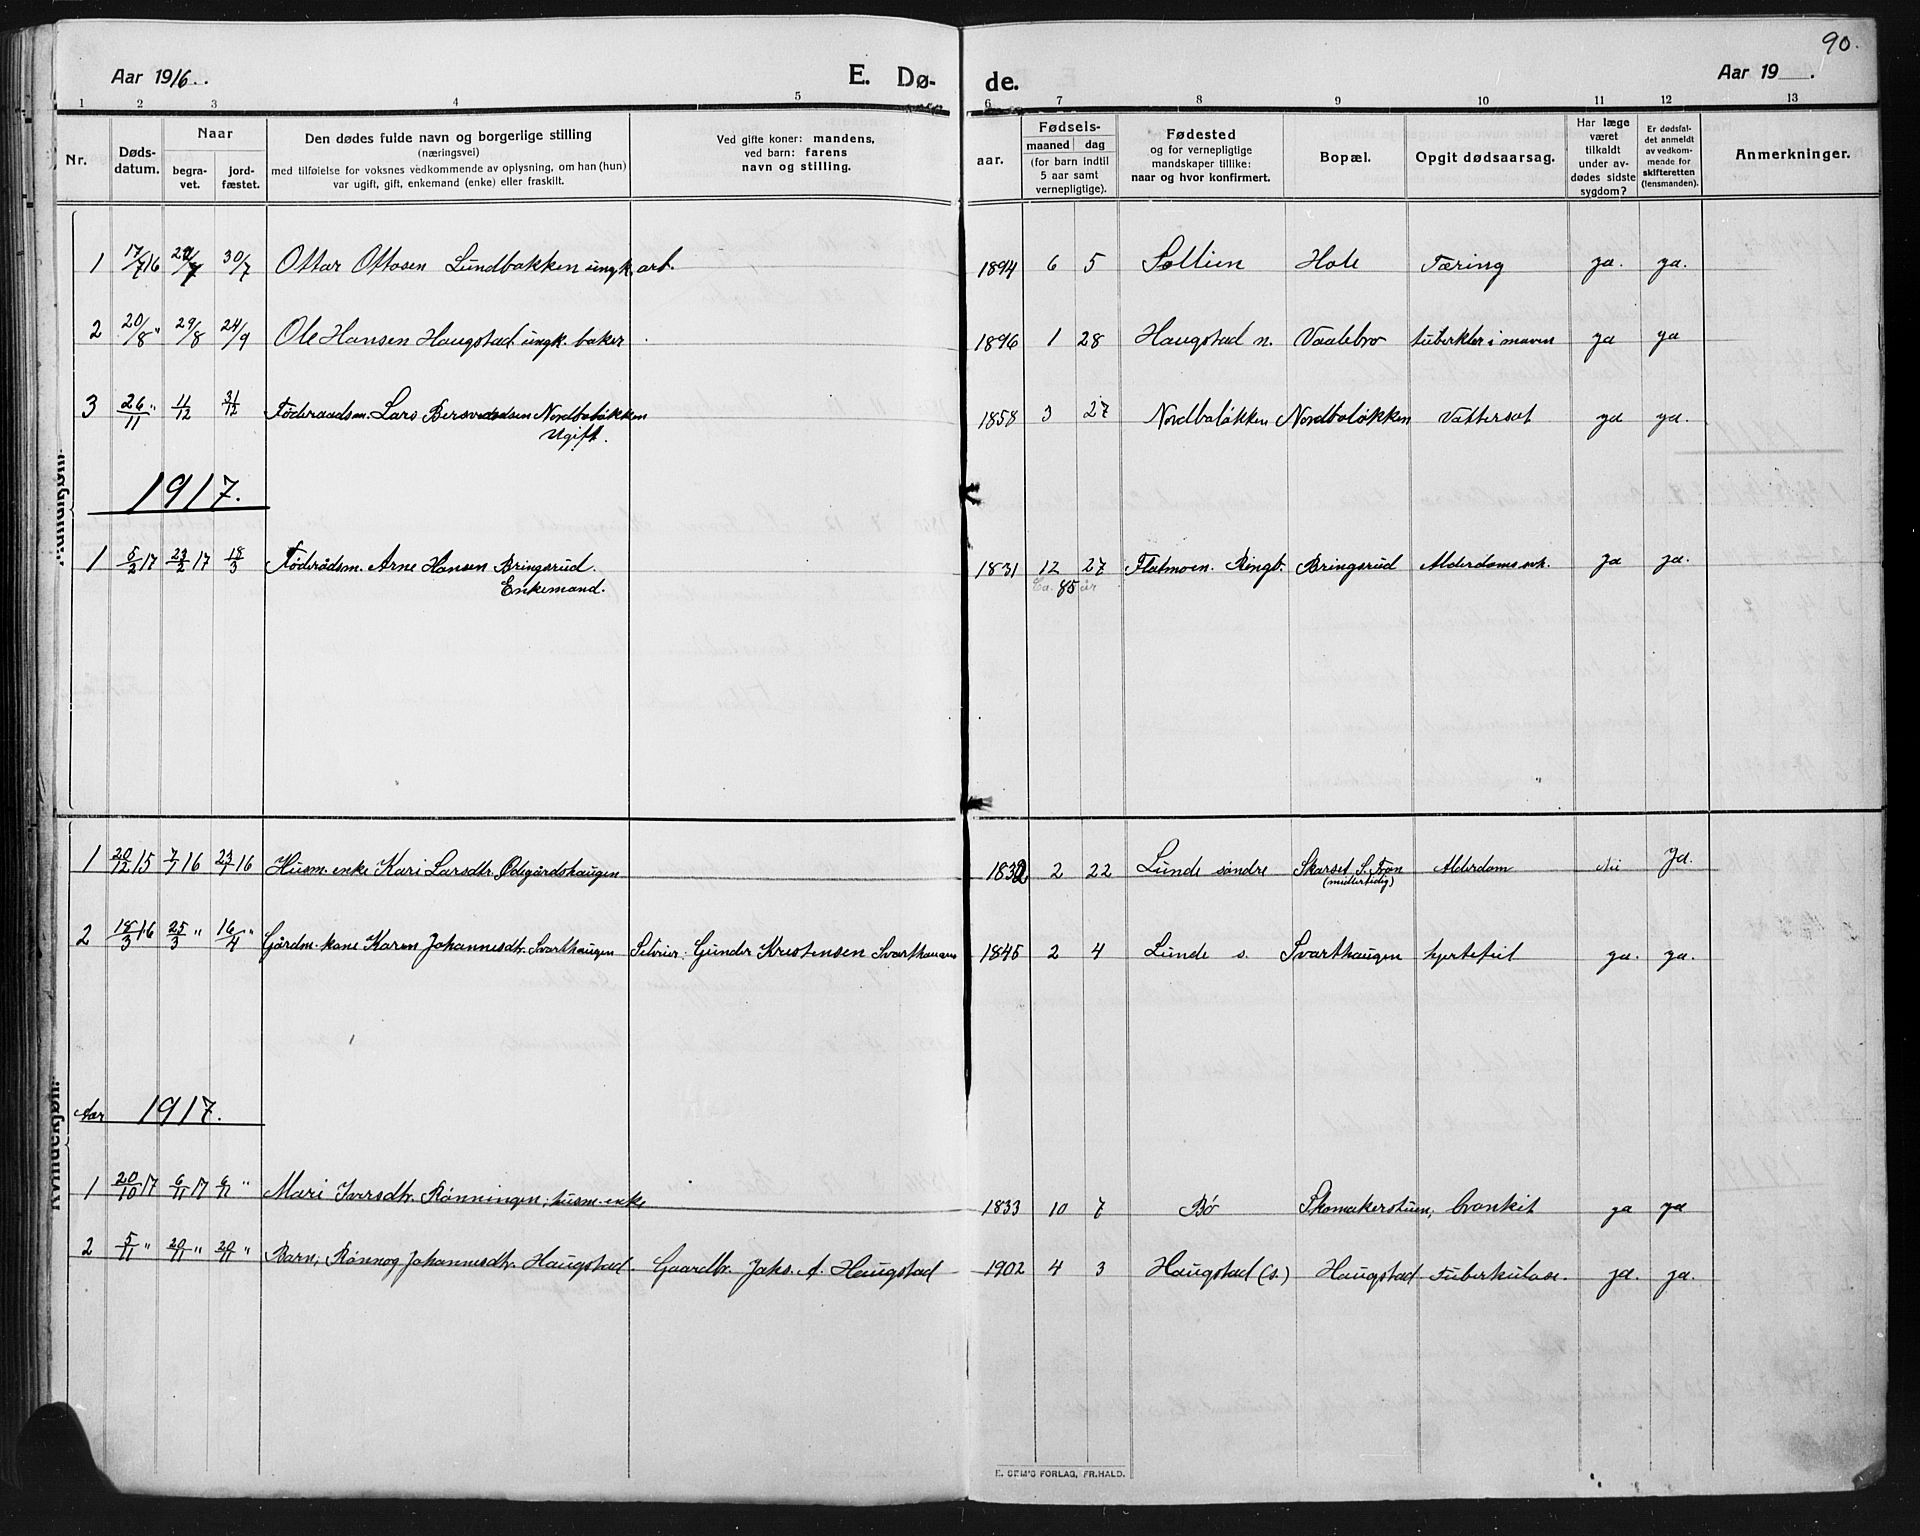 90.
Aar 1916. E. Dø- de. Aar 19 .
1 2 3 4 5 6 7 8 9 10 11 12 13
Nr. Døds-datum. Naar begra-vet. jord-fæstet. Den dødes fulde navn og borgerlige stilling (næringsvei) med tilføielse for voksnes vedkommende av oplysning, om han (hun) var ugift, gift, enkemand (enke) eller fraskilt. Ved gifte koner: mandens, ved barn: farens navn og stilling. aar. Fødsels- maaned dag (for barn indtil 5 aar samt vernepligtige). Fødested og for vernepligtige mandskaper tillike: naar og hvor konfirmert. Bopæl. Opgit dødsaarsag. Har læge været tilkaldt under av-dødes sidste sygdom? Er dødsfal-det anmeldt av vedkom-mende for skifteretten (lensmanden). Anmerkninger.
1 17/7 16 30/7 Ottar Ottosen Lundbakken ungk. arb. 1894 6 5 Sollien Hole Tæring ja. ja.
2 20/8 " 29/8 24/9 Ole Hansen Haugstad ungk. baker 1896 1 28 Haugstad n. Vaalebro tuberkler i maven ja ja
3 26/11 " 11/12 31/12 Føderaadsm. Lars Bersvendsen Nordbaløkken 1858 3 27 Nordbaløkken Nordbaløkken Vattersot ja ja.
Ugift.
1917.
1 5/2 17 23/2 17 18/3 Føderådsm. Arne Hansen Bringsrud. 1831 12 27 Flatmoen. Ringb. Bringsrud Alderdomssvk. ja ja.
Enkemand. Ca. 85 år
1 20/12 15 7/1 16 23/1 16 Husm. enke Kari Larsdtr. Ødegårdshaugen 1832 2 22 Lunde søndre Skarset S. Fron Alderdom Nei Ja.
(midlertidig)
2 18/3 16 25/3 " 16/4 " Gårdm. kone Karen Johannesdtr. Svarthaugen Selveier: Gunder Kristensen Svarthaugen 1845 2 4 Lunde s. Svarthaugen hjertefeil ja. ja.
Kvindekjøn.
Aar 1917.
1 20/10 17 6/11 17 6/11 " Mari Iversdtr. Rønningen, husm. enke 1833 10 7 Bø Skomakerstuen, bronkit ja ja
2 5/11 " 20/11 " 20/11 " Barn, Rønnog Johannesdtr. Haugstad Gaardbr. Johs. A. Haugstad 1902 4 3 Haugstad (s.) Haugstad Tuberkulose. ja. ja.
E. SEM'S FORLAG, FR.HALD.